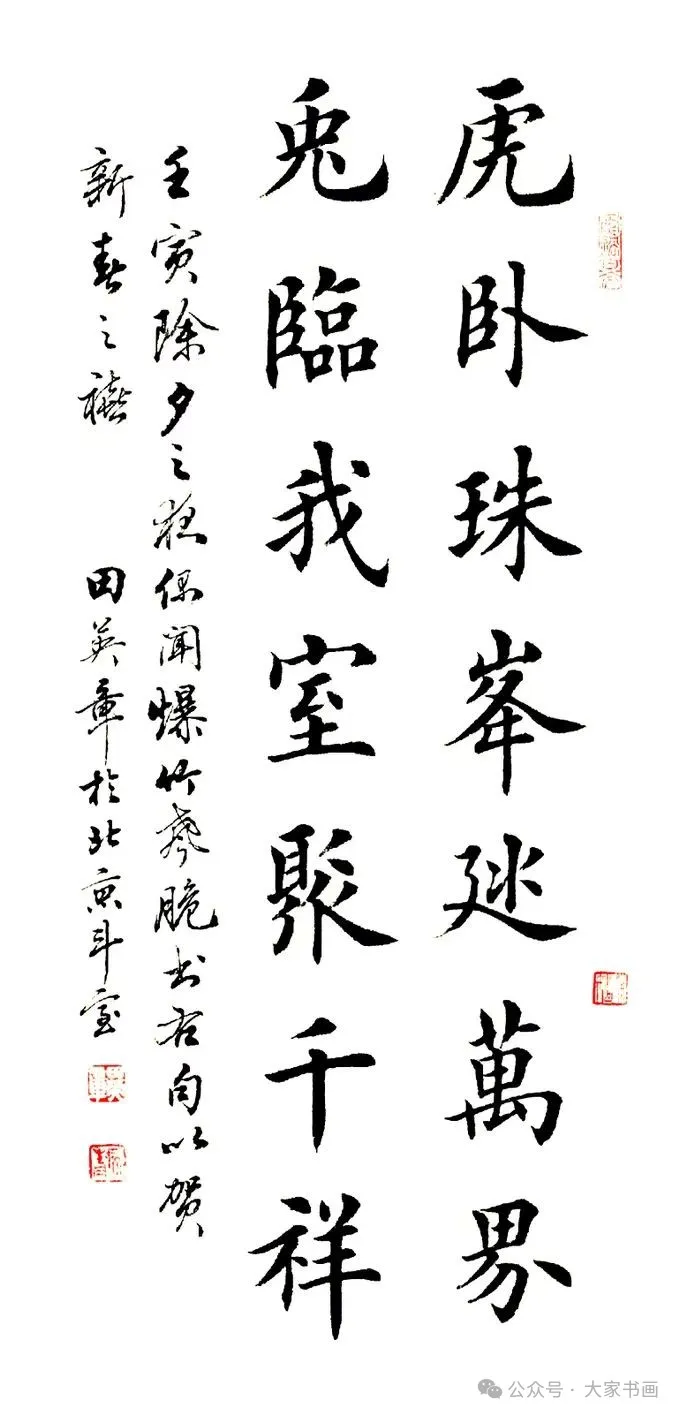 虎卧珠峯廵萬界
兔臨我室聚千祥
壬寅除夕之夜偶聞爆竹声脆书右句以贺
新春之禧 田英章於北京斗室
公众号·大家书画